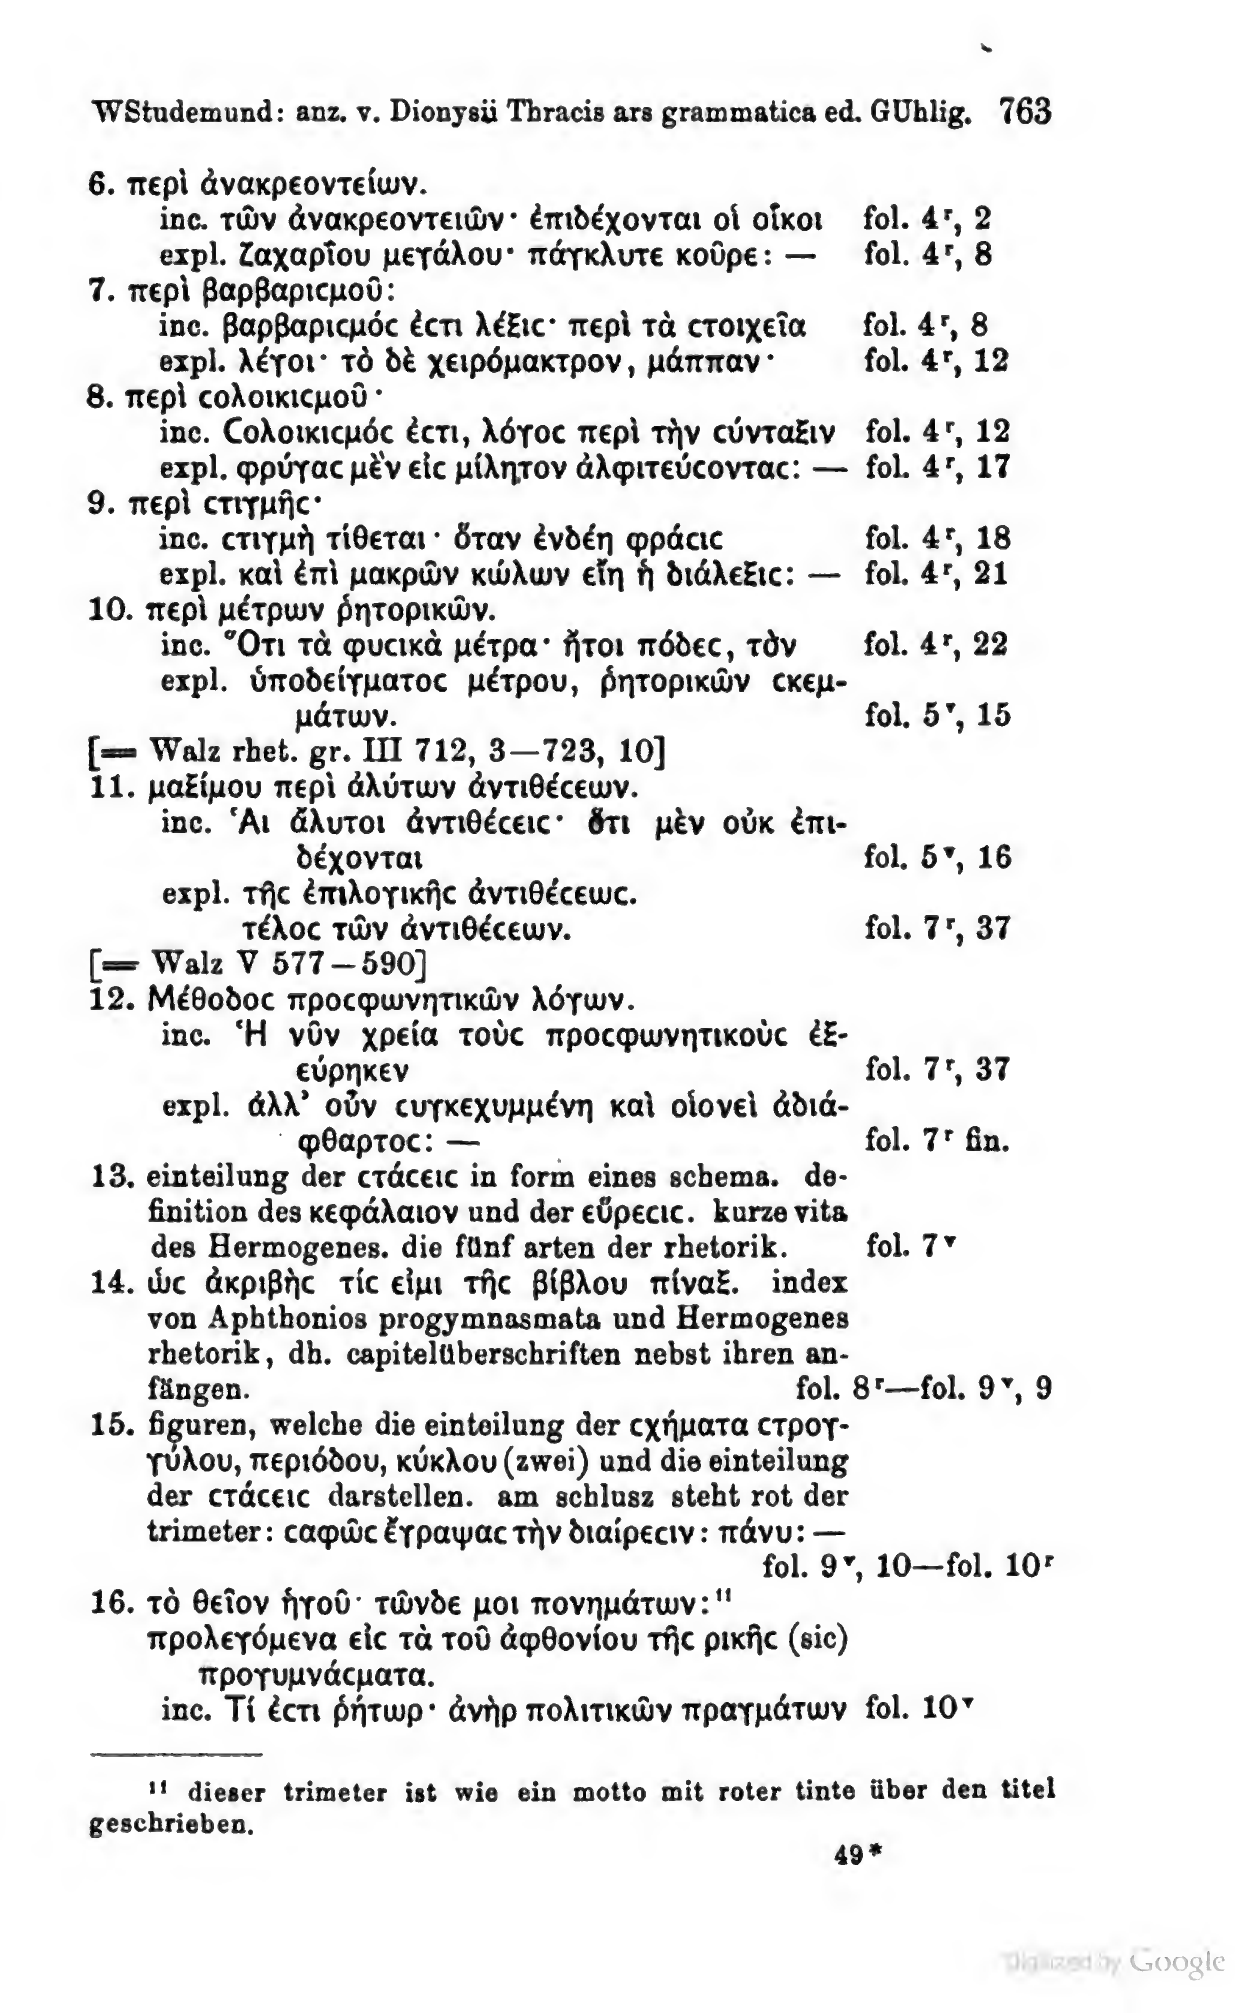 WStudemund: anz. v. Dionysii Thracis ars grammatica ed. GUhlig. 763
6. περὶ ἀνακρεοντείων.
inc. τῶν ἀνακρεοντειῶν· ἐπιδέχονται οἱ οἶκοι fol. 4ʳ, 2
expl. ζαχαρῖου μεγάλου· πάγκλυτε κοῦρε: — fol. 4ʳ, 8
7. περὶ βαρβαριϲμοῦ:
inc. βαρβαριϲμόϲ ἐϲτι λέξιϲ· περὶ τὰ ϲτοιχεῖα fol. 4ʳ, 8
expl. λέγοι· τὸ δὲ χειρόμακτρον, μάππαν· fol. 4ʳ, 12
8. περὶ ϲολοικιϲμοῦ·
inc. Ϲολοικιϲμόϲ ἐϲτι, λόγοϲ περὶ τὴν ϲύνταξιν fol. 4ʳ, 12
expl. φρύγαϲ μὲν εἰϲ μίλητον ἀλφιτεύϲονταϲ: — fol. 4ʳ, 17
9. περὶ ϲτιγμῆϲ·
inc. ϲτιγμὴ τίθεται· ὅταν ἐνδέη φράϲιϲ fol. 4ʳ, 18
expl. καὶ ἐπὶ μακρῶν κώλων εἴη ἡ διάλεξιϲ: — fol. 4ʳ, 21
10. περὶ μέτρων ῥητορικῶν.
inc. Ὅτι τὰ φυϲικὰ μέτρα· ἤτοι πόδεϲ, τὸν fol. 4ʳ, 22
expl. ὑποδείγματοϲ μέτρου, ῥητορικῶν ϲκεμ-
μάτων. fol. 5ᵛ, 15
[= Walz rhet. gr. III 712, 3—723, 10]
11. μαξίμου περὶ ἀλύτων ἀντιθέϲεων.
inc. Ἁι ἄλυτοι ἀντιθέϲειϲ· ὅτι μὲν οὐκ ἐπι-
δέχονται fol. 5ᵛ, 16
expl. τῆϲ ἐπιλογικῆϲ ἀντιθέϲεωϲ.
τέλοϲ τῶν ἀντιθέϲεων. fol. 7ʳ, 37
[= Walz V 577—590]
12. Μέθοδοϲ προϲφωνητικῶν λόγων.
inc. Ἡ νῦν χρεία τοὺϲ προϲφωνητικοὺϲ ἐξ-
εύρηκεν fol. 7ʳ, 37
expl. ἀλλ’ οὖν ϲυγκεχυμμένη καὶ οἱονεὶ ἀδιά-
φθαρτοϲ: — fol. 7ʳ fin.
13. einteilung der ϲτάϲειϲ in form eines schema. de-
finition des κεφάλαιον und der εὕρεϲιϲ. kurze vita
des Hermogenes. die fünf arten der rhetorik. fol. 7ᵛ
14. ὡϲ ἀκριβὴϲ τίϲ εἰμι τῆϲ βίβλου πίναξ. index
von Aphthonios progymnasmata und Hermogenes
rhetorik, dh. capitelüberschriften nebst ihren an-
fängen. fol. 8ʳ—fol. 9ᵛ, 9
15. figuren, welche die einteilung der ϲχήματα ϲτρογ-
γύλου, περιόδου, κύκλου (zwei) und die einteilung
der ϲτάϲειϲ darstellen. am schlusz steht rot der
trimeter: ϲαφῶϲ ἔγραψαϲ τὴν διαίρεϲιν: πάνυ: —
fol. 9ᵛ, 10—fol. 10ʳ
16. τὸ θεῖον ἡγοῦ· τῶνδε μοι πονημάτων:¹¹
προλεγόμενα εἰϲ τὰ τοῦ ἀφθονίου τῆϲ ρικῆϲ (sic)
προγυμνάϲματα.
inc. Τί ἐϲτι ῥήτωρ· ἀνὴρ πολιτικῶν πραγμάτων fol. 10ᵛ
¹¹ dieser trimeter ist wie ein motto mit roter tinte über den titel
geschrieben.
49*
Digitized by Google